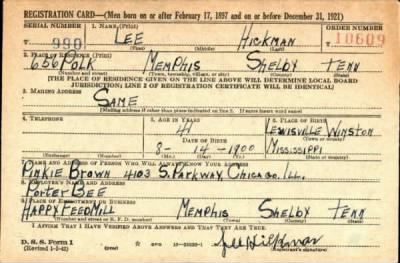 REGISTRATION CARD—(Men born on or after February 17, 1897 and on or before December 31, 1921)
SERIAL NUMBER 1. NAME (Print) ORDER NUMBER
T 990 LEE HICKMAN T 10609
(First) (Middle) (Last)
2. PLACE OF RESIDENCE (Print)
656 POLK MEMPHIS SHELBY TENN
(Number and street) (Town, township, village, or city) (County) (State)
[THE PLACE OF RESIDENCE GIVEN ON THE LINE ABOVE WILL DETERMINE LOCAL BOARD
JURISDICTION; LINE 2 OF REGISTRATION CERTIFICATE WILL BE IDENTICAL]
3. MAILING ADDRESS
SAME
[Mailing address if other than place indicated on line 2. If same insert word same]
4. TELEPHONE 5. AGE IN YEARS 6. PLACE OF BIRTH
41 LEWISVILLE WINSTON
DATE OF BIRTH (Town or county)
8- 14 -1900 MISSISSIPPI
(Exchange) (Number) (Mo.) (Day) (Yr.) (State or country)
7. NAME AND ADDRESS OF PERSON WHO WILL ALWAYS KNOW YOUR ADDRESS
PINKIE BROWN 4103 S. PARKWAY CHICAGO. ILL.
8. EMPLOYER'S NAME AND ADDRESS
PORTER BEE
9. PLACE OF EMPLOYMENT OR BUSINESS
HAPPY FEED MILL MEMPHIS SHELBY TENN
(Number and street or R. F. D. number) (Town) (County) (State)
I AFFIRM THAT I HAVE VERIFIED ABOVE ANSWERS AND THAT THEY ARE TRUE.
D. S. S. Form 1
(Revised 1-5-42) (over)
(Registrant's signature)